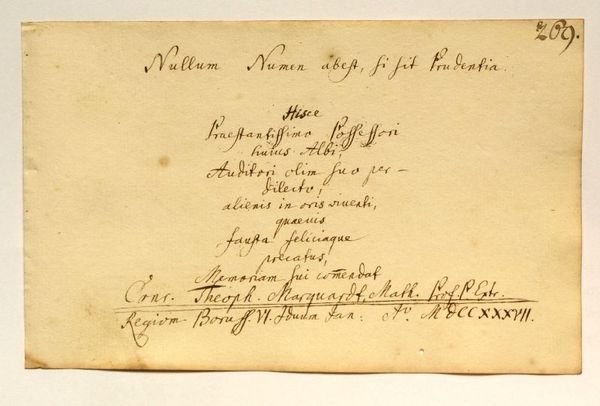 269.
Nullum Numen abest, si sit Prudentia.
Hisce
Praestantissimo Possessori
huius Albi,
Auditori olim suo per-
dilecto,
alienis in oris viventi,
quaevis
fausta feliciaque
precatus,
Memoriam sui com̅endat
Conr. Theoph. Marquardt, Math. Prof. P. Extr.
Regiom. Boruss. VI. Iduum Jan: Aº. MDCCXXXVII.